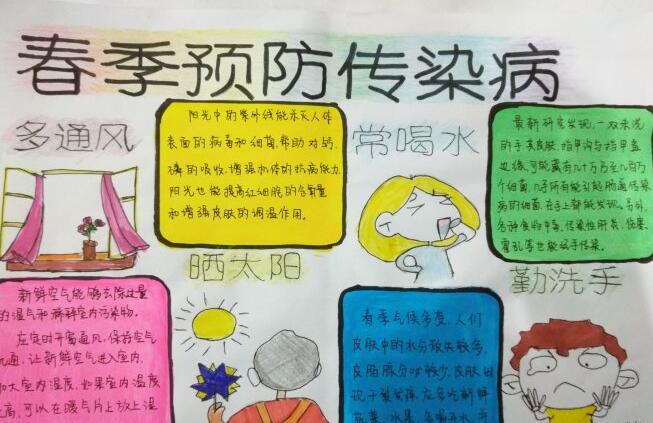 春季预防传染病
多通风
阳光中的紫外线能杀灭人体
表面的病毒和细菌,帮助对钙、
磷的吸收,增强机体的抗病能力,
阳光也能提高红细胞的含氧量
和增强皮肤的调温作用。
常喝水
最新研究发现,一双未洗
的手其皮肤、指甲沟与指甲盖
边缘,可能藏有几十万万至几百万
个细菌,几乎所有能引起肠道传染
病的细菌,在手上都能发现,另外,
各种食物中毒,传染性肝炎、伤寒、
霍乱等也能以手传染。
晒太阳
勤洗手
新鲜空气能够去除过量
的湿气和稀释室内污染物。
应定时开窗通风,保持空气
流通,让新鲜空气进入室内,
加大室内湿度,如果室内温度
过高,可以在暖气片上放上湿
春季气候多变,人们
皮肤中的水分散失较多,
皮脂腺分泌较少,皮肤
现干裂发痒,应多吃新鲜
蔬菜、水果,多喝开水,并